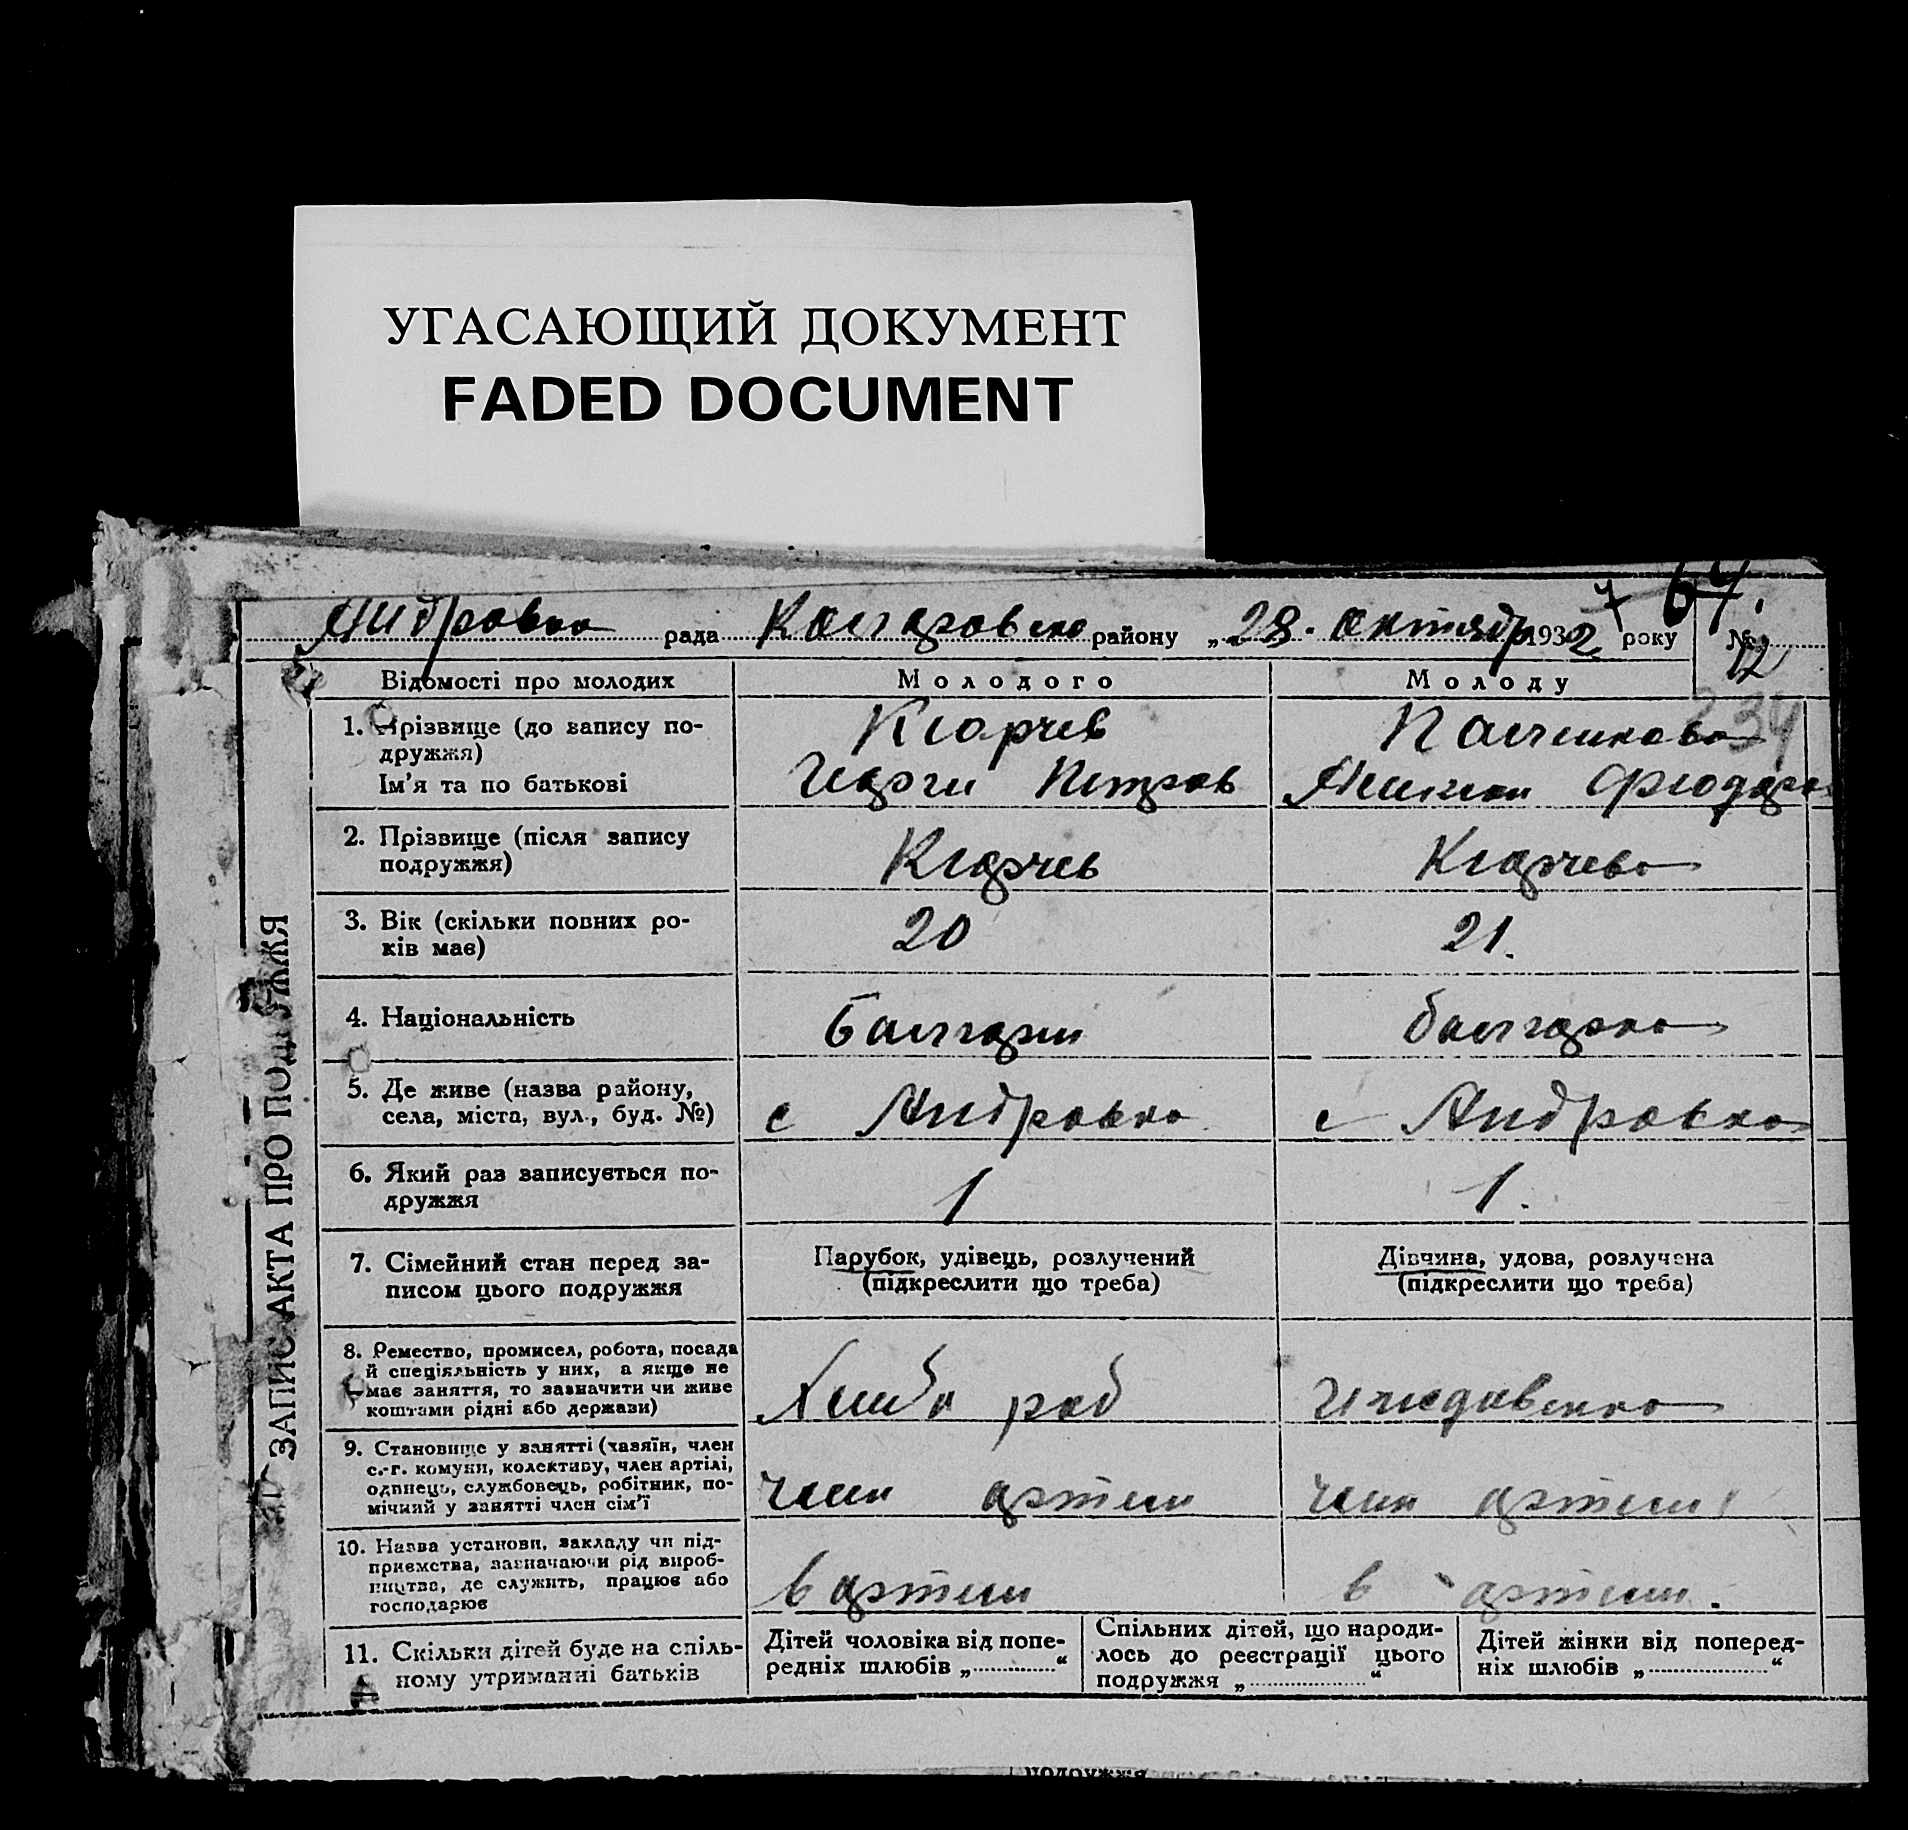 УГАСАЮЩИЙ ДОКУМЕНТ
FADED DOCUMENT
7 64.
Андровка рада Коларовско району „28. октябр 1932 року № 12
Відомості про молодих Молодого Молоду
234
1. Прізвище (до запису по-
дружжя)
Ім'я та по батькові
Кюрчев
Георги Петров
2. Прізвище (після запису
подружжя)
Кюрчев
Кюрчева
3. Вік (скільки повних ро-
ків має)
20
21.
4. Національність
Болгарин
болгарка
5. Де живе (назва району,
села, міста, вул., буд. №)
с Андровка
с Андровка
6. Який раз записується по-
дружжя
1
1.
7. Сімейний стан перед за-
писом цього подружжя
Парубок, удівець, розлучений
(підкреслити що треба)
Дівчина, удова, розлучена
(підкреслити що треба)
8. Ремество, промисел, робота, посада
й спеціяльність у них, а якщо не
має заняття, то зазначити чи живе
коштами рідні або держави)
Хлиб роб
9. Становище у занятті (хазяїн, член
с.-г. комуни, колективу, член артілі,
одинець, службовець, робітник, по-
мічний у занятті член сім'ї
член артели
член артели
10. Назва установи, закладу чи під-
приємства, зазначаючи рід вироб-
ництва, де служить, працює або
господарює
в артели
в артели.
11. Скільки дітей буде на спіль-
ному утриманні батьків
Дітей чоловіка від попе-
редніх шлюбів „..............“
Спільних дітей, що народи-
лось до реєстрації цього
подружжя „....................“
Дітей жінки від поперед-
ніх шлюбів „....................“
ЗАПИС АКТА ПРО ПОДРУЖЖЯ
подружжя